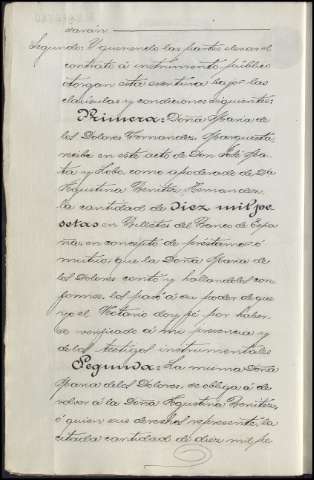 darán
Segundo: Y queriendo las partes elevar el
contrato á instrumento público
otorgan esta escritura bajo las
cláusulas y condiciones siguientes:
Primera: Doña Maria de
los Dolores Fernandez, Marquesa
recibe en este acto de Don José Ma-
ta y Lobo como apoderado de Da
Agustina Benitez Fernandez
la cantidad de diez mil pe-
setas en Billetes del Banco de Espa-
ña en concepto de préstamo ó
mútuo, que la Doña Maria de
los Dolores contó y hallandolos con-
formes, los pasó á su poder de que
yo el Notario doy fé por haber-
se verificado á mi presencia y
de los testigos instrumentales
Segunda: La misma Doña
Maria de los Dolores, se obliga á de
volver á la Doña Agustina Benitez,
ó quien sus derechos represente, la
citada cantidad de diez mil pe